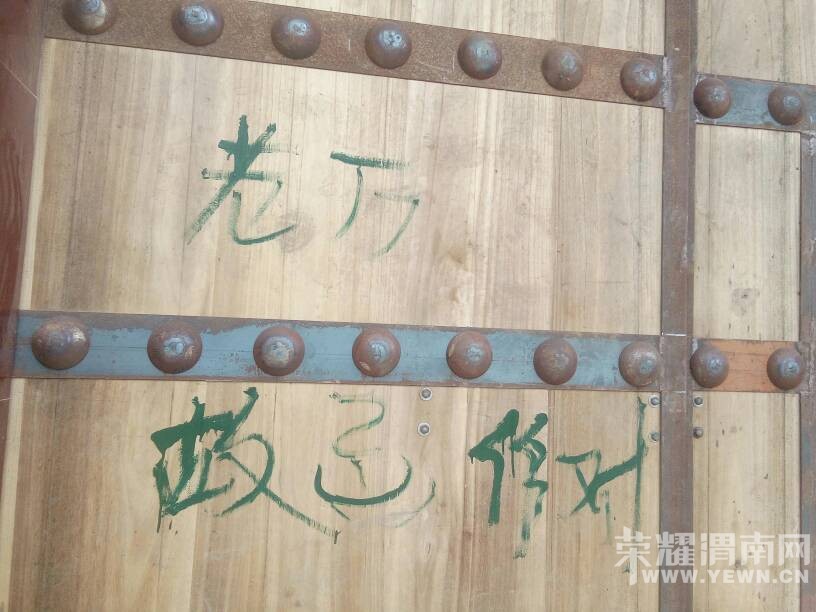 老万
故已修对
荣耀渭南网
WWW.YEWN.CN